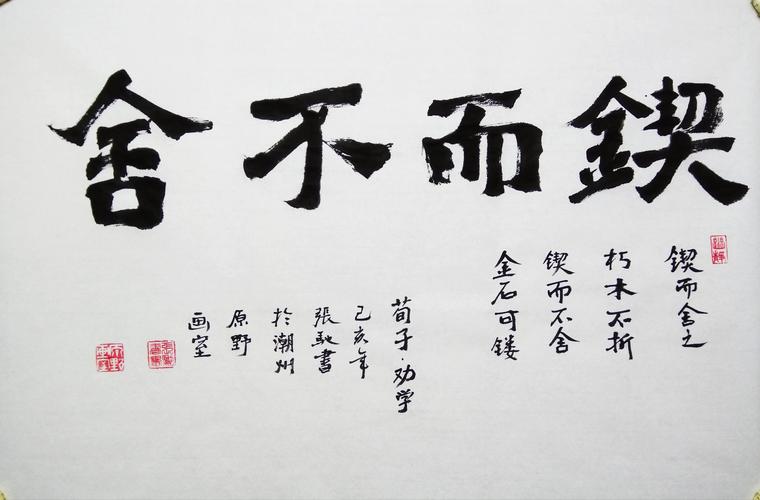 鍥而不舍
鍥而舍之
朽木不折
鍥而不舍
金石可镂
荀子·劝学
己亥年
張耿書
於潮州
原野
画室